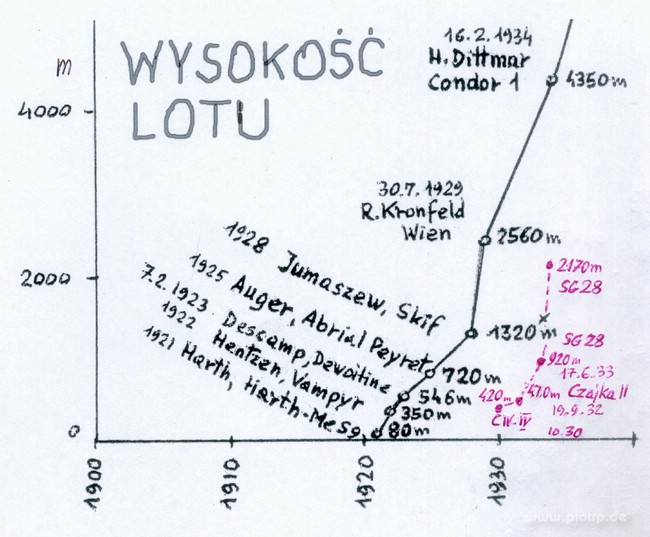 WYSOKOŚĆ
LOTU
m
4000
2000
0
16.2.1934
H. Dittmar
Condor 1
4350m
30.7.1929
R. Kronfeld
Wien
2560m
1928 Jumaszew, Skif
1320m
1925 Auger, Abrial Peyret
720m
7.2.1923 Descamp, Dewoitine
546m
1922 Hentzen, Vampyr
350m
1921 Harth, Harth-Me S9
80m
2170m
SG28
SG28
920m
17.6.33
470m Czajka II
19.9.32
420m
CW-IV
10.30
1900
1910
1920
1930
www.piotrp.de